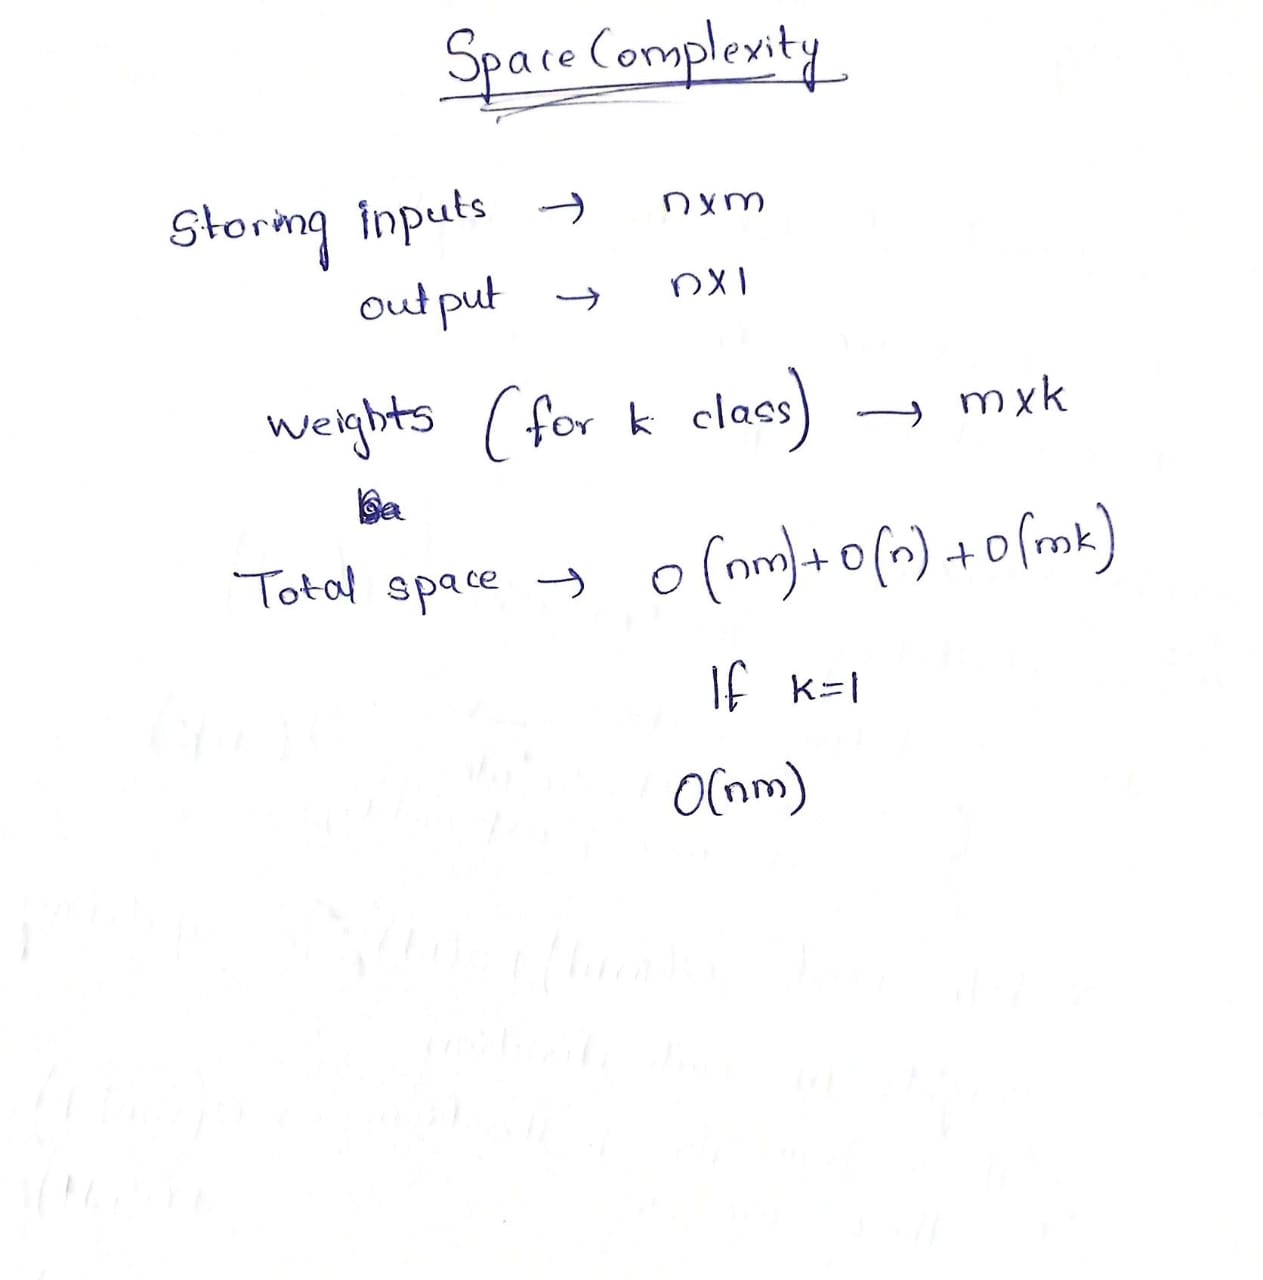 Space Complexity
Storing inputs → n x m
output → n x 1
weights (for k class) → m x k
Total space → O(nm) + O(n) + O(mk)
If k=1
O(nm)